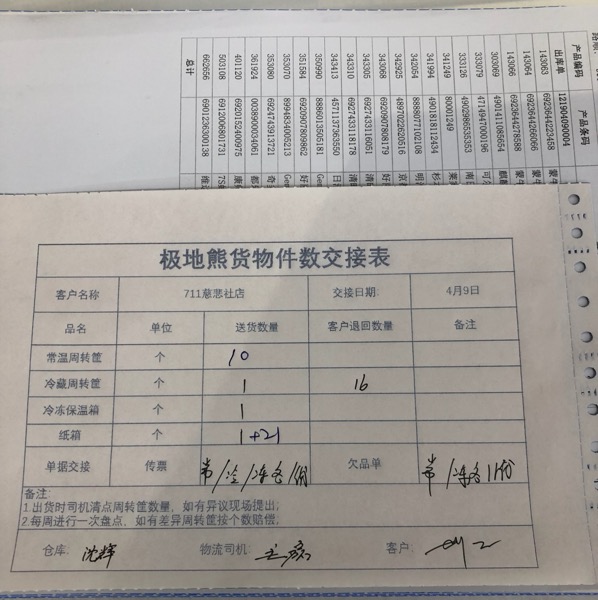 产品编码 产品条码
出库单 121904090004
143063 6923644223458
143064 6923644266066
143066 6923644278588
303069 4901411085654
333079 4714947000196
333126 4902986535353
341249 80001249
341994 4901818112434
342054 8888077102108
342925 4897022620516
343068 6920907808179
343305 6927433116051
343310 6927433118178
343413 4571137363550
350990 8886013505181
351584 6920907809862
353070 8994834005213
353080 6924743913721
361924 0038900034061
401120 6920152400975
503108 6912006801731
662656 6901236300138
总计
极地熊货物件数交接表
客户名称 711慈悲社店 交接日期: 4月9日
品名 单位 送货数量 客户退回数量 备注
常温周转筐 个 10
冷藏周转筐 个 1 16
冷冻保温箱 个 1
纸箱 个 1+21
单据交接 传票 常/冷/冻各1份 欠品单 常/冻各1份
备注:
1.出货时司机清点周转筐数量,如有异议现场提出;
2.每周进行一次盘点,如有差异周转筐按个数赔偿。
仓库: 沈辉 物流司机: 客户: